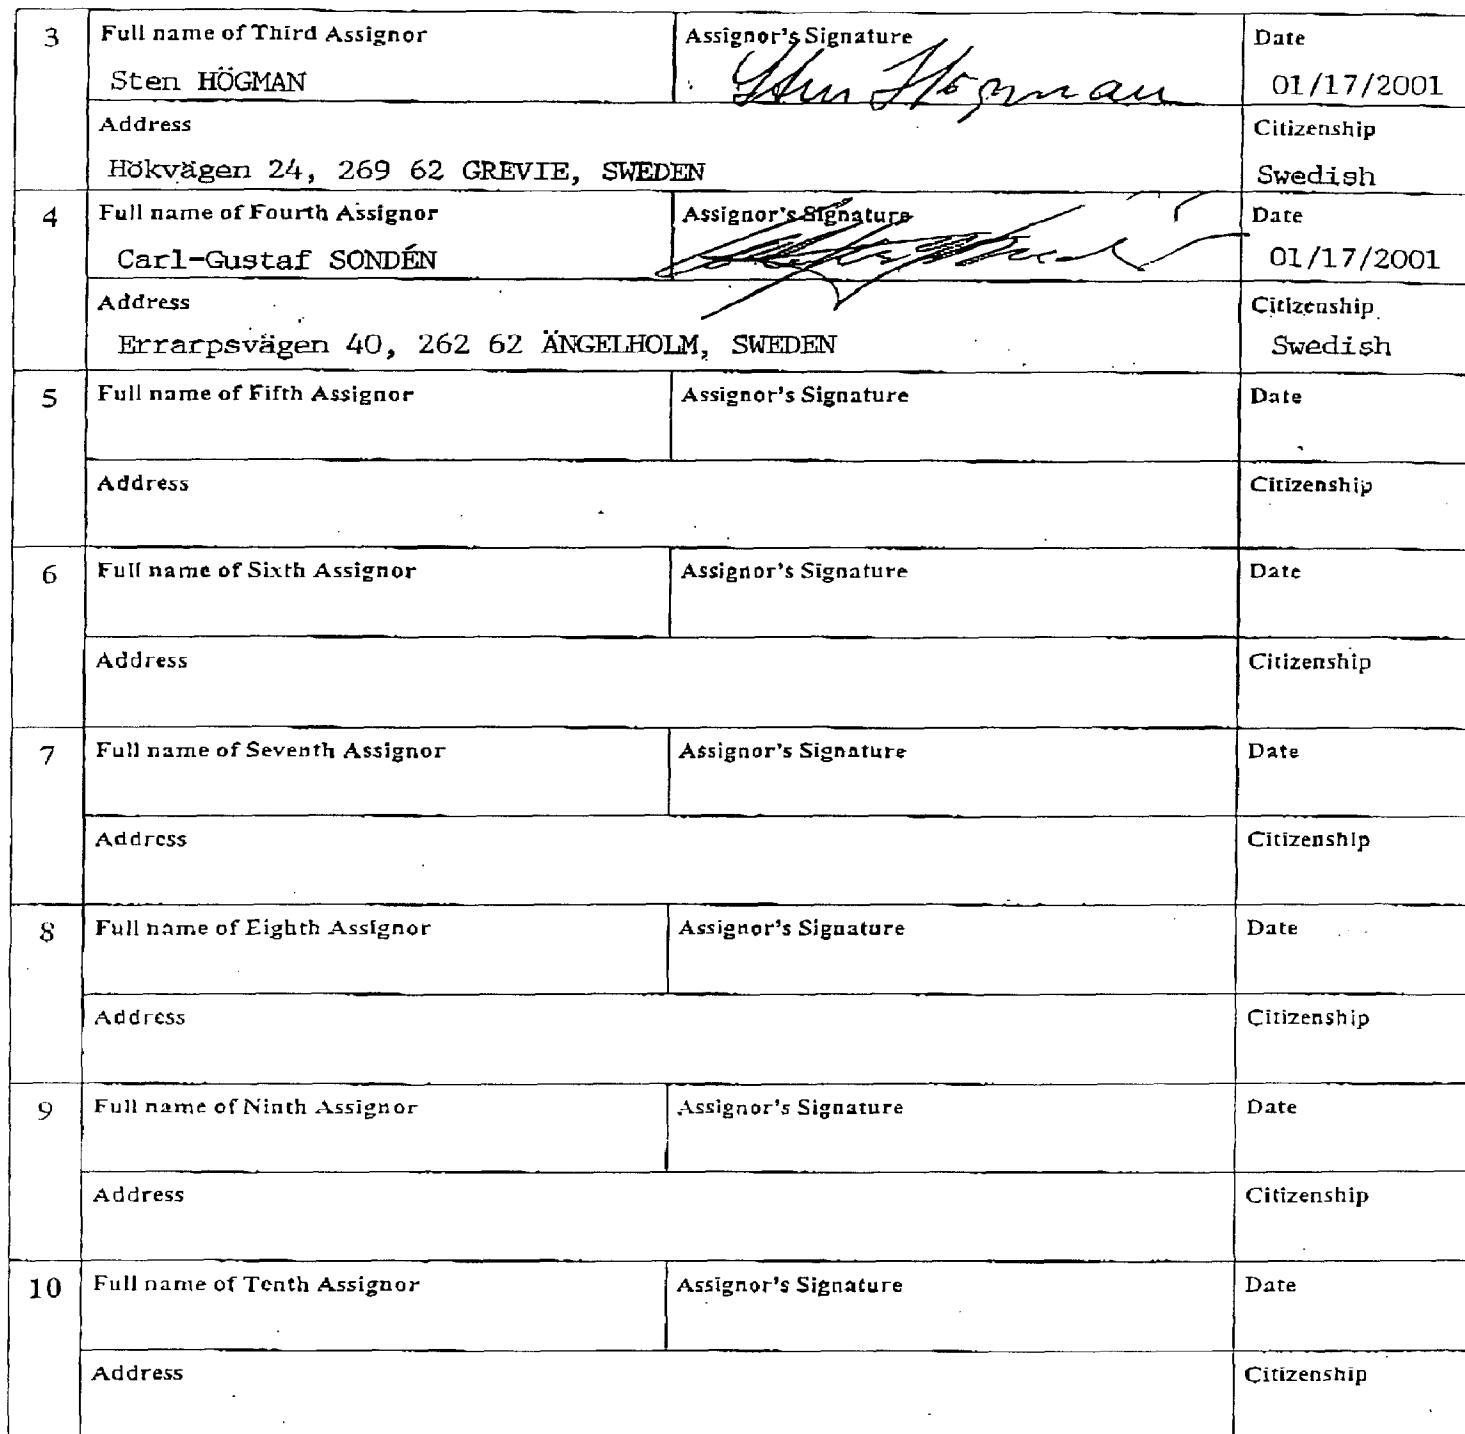 3 Full name of Third Assignor Assignor's Signature Date
Sten HÖGMAN Sten Högman 01/17/2001
Address Citizenship
Hökvägen 24, 269 62 GREVIE, SWEDEN Swedish
4 Full name of Fourth Assignor Assignor's Signature Date
Carl-Gustaf SONDÉN 01/17/2001
Address Citizenship
Errarpsvägen 40, 262 62 ÄNGELHOLM, SWEDEN Swedish
5 Full name of Fifth Assignor Assignor's Signature Date
Address Citizenship
6 Full name of Sixth Assignor Assignor's Signature Date
Address Citizenship
7 Full name of Seventh Assignor Assignor's Signature Date
Address Citizenship
8 Full name of Eighth Assignor Assignor's Signature Date
Address Citizenship
9 Full name of Ninth Assignor Assignor's Signature Date
Address Citizenship
10 Full name of Tenth Assignor Assignor's Signature Date
Address Citizenship